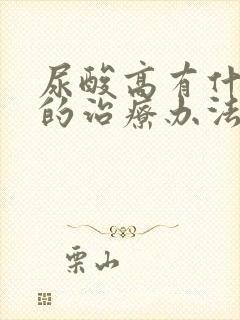 尿酸高有什
的治疗办法
栗山